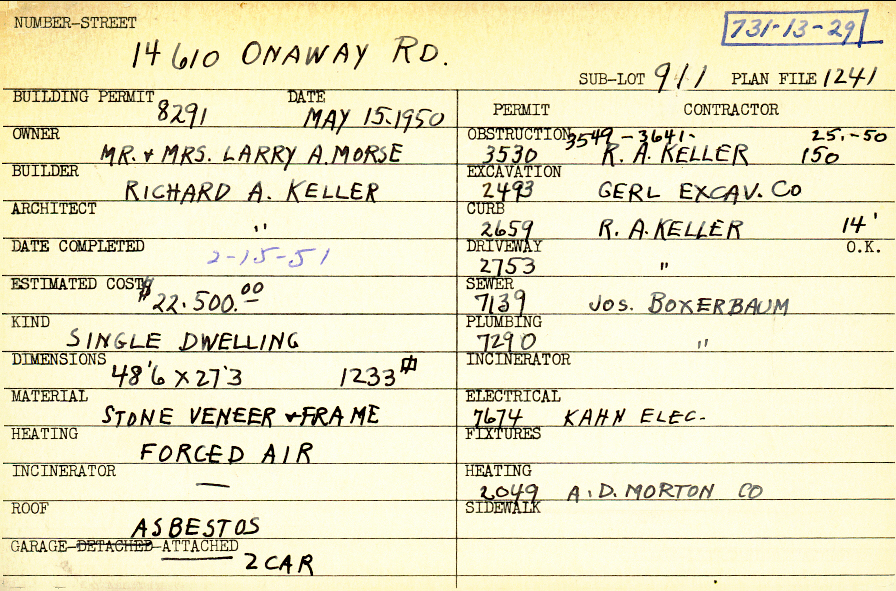 NUMBER-STREET
731-13-29
14610 ONAWAY RD.
SUB-LOT 911 PLAN FILE 1241
BUILDING PERMIT DATE
8291 MAY 15.1950
OWNER
MR. & MRS. LARRY A. MORSE
BUILDER
RICHARD A. KELLER
ARCHITECT
"
DATE COMPLETED
2-15-51
ESTIMATED COST
$22.500.00
KIND
SINGLE DWELLING
DIMENSIONS
48'6 X 27'3 1233
MATERIAL
STONE VENEER & FRAME
HEATING
FORCED AIR
INCINERATOR
—
ROOF
ASBESTOS
GARAGE-DETACHED-ATTACHED
2 CAR
PERMIT CONTRACTOR
OBSTRUCTION 3549 - 3641- 25.-50
3530 R. A. KELLER 150
EXCAVATION
2493 GERL EXCAV. CO
CURB
2659 R. A. KELLER 14'
DRIVEWAY O.K.
2753 "
SEWER
7139 JOS. BOXERBAUM
PLUMBING
7290 "
INCINERATOR
ELECTRICAL
7674 KAHN ELEC-
FIXTURES
HEATING
2049 A.D. MORTON CO
SIDEWALK